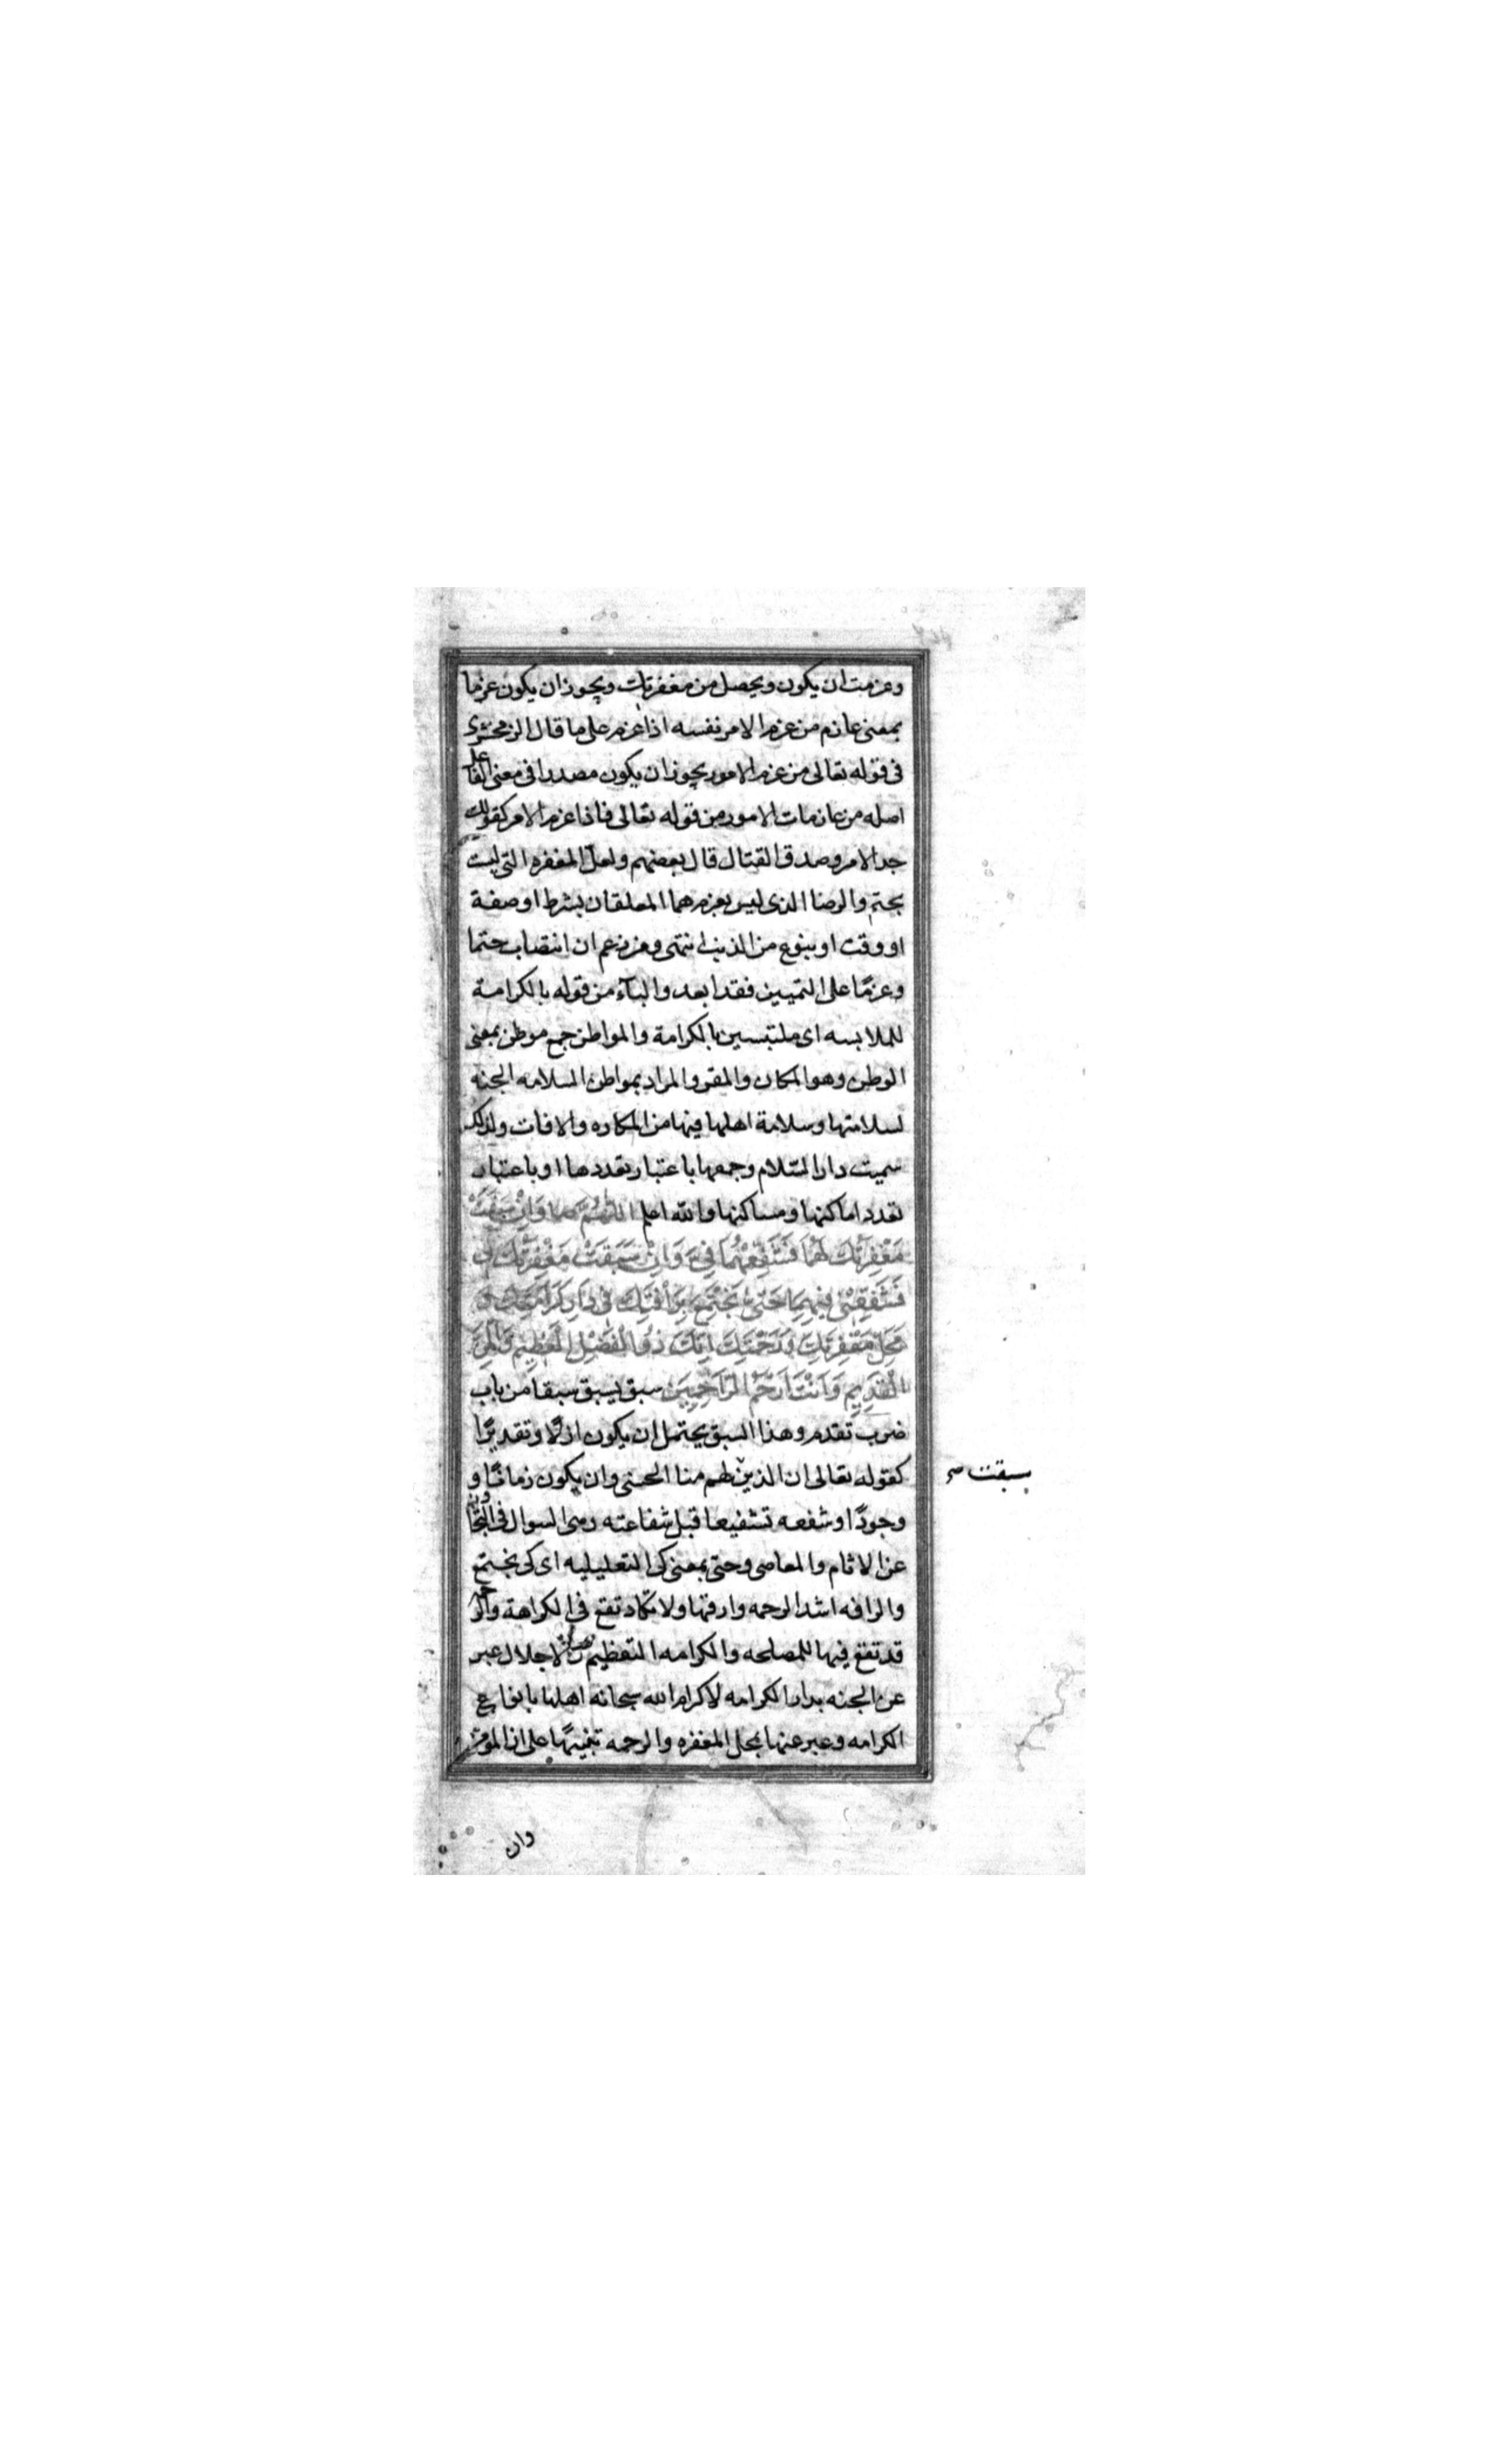 وعزمت ان يكون ويحصل من مغفرتك ويجوز ان يكون عزما
بمعنى عازم من عزم الامر نفسه اذا عزم على ما قال الزمخشرى
فى قوله تعالى من عزم الامور يجوز ان يكون مصدرا فى معنى الفاعل
اصله من عازمات الامور من قوله تعالى فاذا عزم الامر كقولك
جد الامر وصدق القتال قال بعضهم ولعل المغفره التى ليست
بحتم والرضا الذى ليس بعزم هما المعلقان بشرط او صفة
او وقت او بنوع من الذنب انتهى ومن زعم ان انتصاب حتما
وعزمًا على التميين فقد ابعد والبآء من قوله بالكرامة
للملابسه اى ملتبسين بالكرامة والمواطن جمع موطن بمعنى
الوطن وهو المكان والمقر والمراد بمواطن السلامه الجنه
لسلامتها وسلامة اهلها فيها من المكاره والافات ولذلك
سميت دار السّلام وجمعها باعتبار تعددها او باعتبار
تعدد اماكنها ومساكنها والله اعلم اللّٰهُمَّ وَاِنْ سَبَقَتْ
مَغْفِرَتُكَ لَهُمَا فَشَفِّعْهُمَا فِىَّ وَاِنْ سَبَقَتْ مَغْفِرَتُكَ لى
فَشَفِّعْنى فيهِمَا حَتّى نَجْتَمِعَ بِرَأْفَتِكَ فى دَارِ كَرَامَتِكَ وَ
مَحَلِّ مَغْفِرَتِكَ وَرَحْمَتِكَ اِنَّكَ ذُو الْفَضْلِ الْعَظِيْمِ وَالْمَنِّ
الْقَدِيمِ وَاَنْتَ اَرْحَمُ الرَّاحِمِيَن سبق يسبق سبقا من باب
ضرب تقدم وهذا السبق يحتمل ان يكون ازلًا وتقديرًا
كقوله تعالى ان الذين لهم منا الحسنى وان يكون زمانًا و
سبقت
وجودًا وشفعه تشفيعا قبل شفاعته وهى السوال فى التجاوز
عن الاثام والمعاصى وحتى بمعنى كى التعليليه اى كى نجتمع
والرافه اشد الرحمه وارقها ولا تكاد تقع فى الكراهة والرحمة
قد تقع فيها للمصلحه والكرامه التعظيم والاجلال عبر
عن الجنه بدار الكرامه لاكرام الله سبحانه اهلها بانواع
الكرامه وعبر عنها بمحل المغفره والرحمه تنبيهًا على ان المؤمن
وان